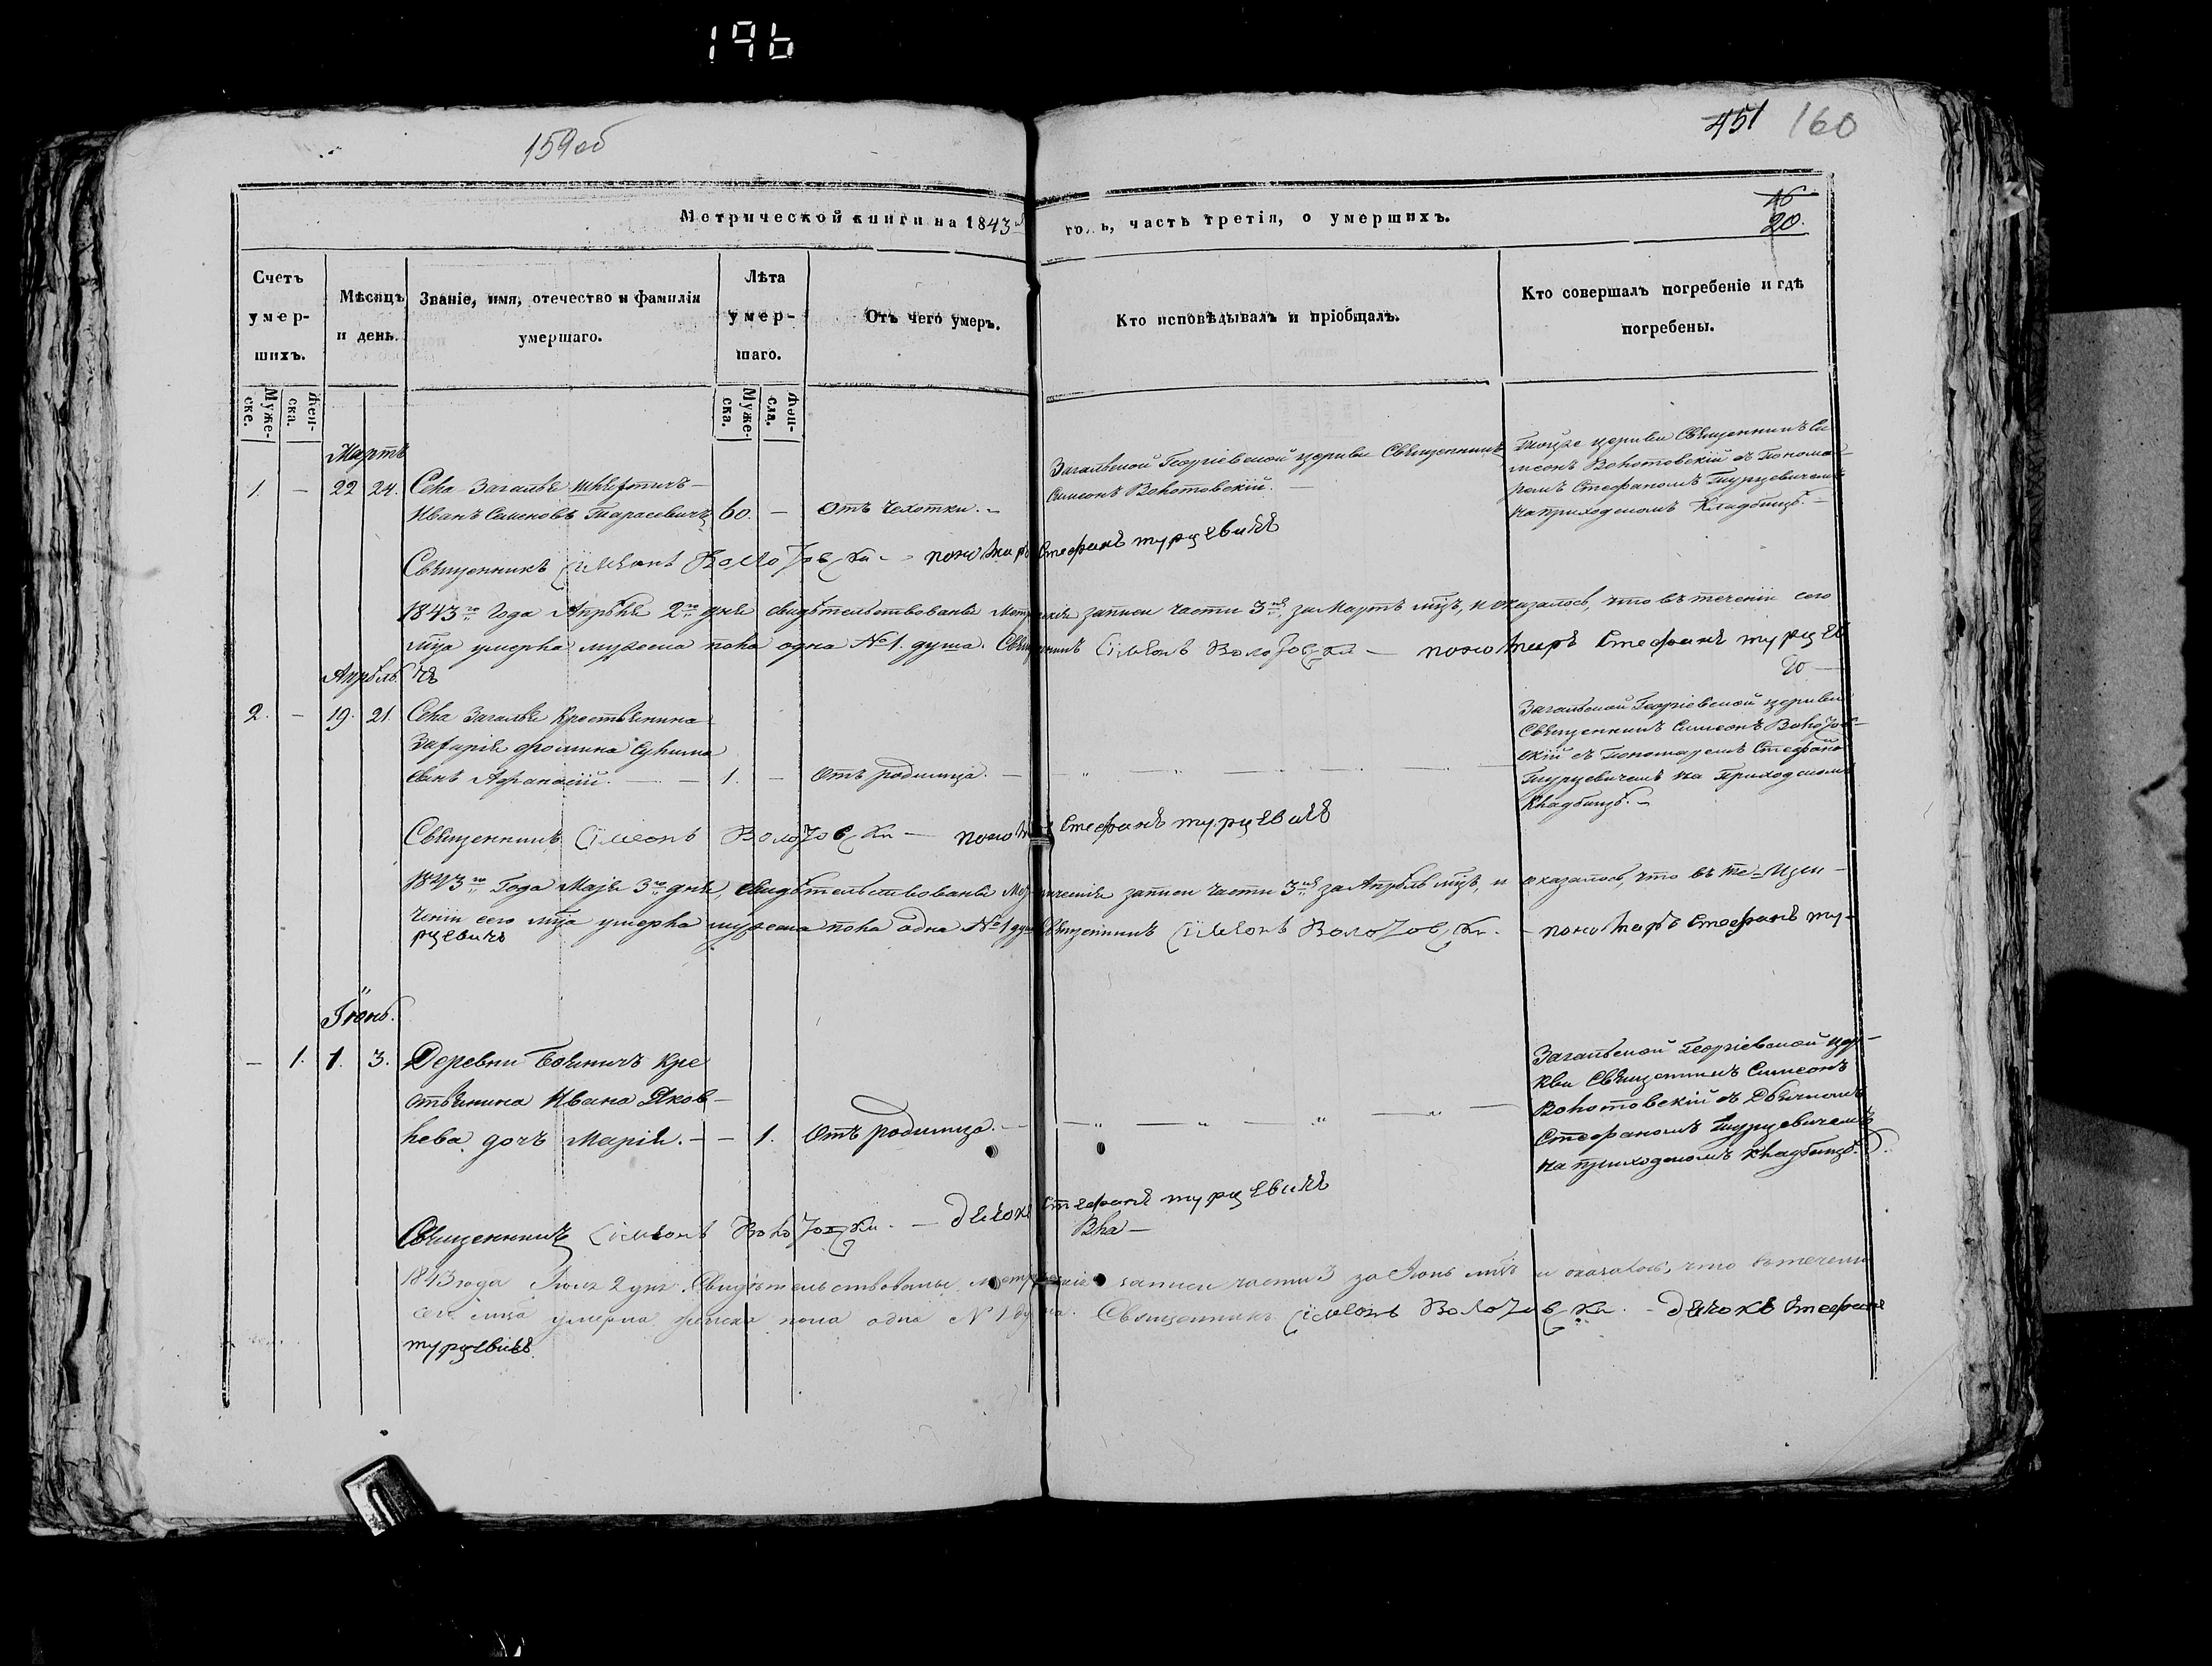 196
159об
451 160
Метрической книги на 1843й
го..ъ, часть третія, о умершихъ.
16
20.
Счетъ умер-шихъ.
Мѣсяцъ и день.
Званіе, имя, отечество и фамилія умершаго.
Лѣта умер-шаго.
Отъ чего умеръ.
Кто исповѣдывалъ и пріобщалъ.
Кто совершалъ погребеніе и гдѣ погребены.
Муже-ске.
Жен-ска.
Муже-ска.
Жен-ска.
Мартъ
1. — 22 24. Села Загалья
Иванъ Семеновъ Тарасевичъ 60. — Отъ чехотки. —
Загальской Георгіевской церкви Священникъ
Симеонъ Волотовскій. —
церкви Священникъ Си
меонъ Волотовскій съ Понома-
ремъ Стефаномъ Турцевичемъ
на приходскомъ Кладбищѣ. —
Священникъ Сімеонъ Волотовски — пономаръ Стефанъ турцевичъ
1843го Года Апрѣля 2го дня свидѣтельствованы Метрическія записи части 3й, за Мартъ мцъ, и оказалось, что въ теченіи сего
мца умерла мужеска пола одна №1. душа. Священникъ Сімеонъ Волотовски — пономаръ Стефанъ турцев
Апрѣль. чъ
2. — 19. 21. Села Загалья Крестьянина
Захарія Фомина
сынъ Афанасій. — 1. — Отъ родимца. —
Загальской Георгіевской церкви
Священникъ Симеонъ Волотов-
скій съ Пономаремъ Стефано
Турцевичемъ на Приходскомъ
Кладбищѣ. —
Священникъ Сімеонъ Волотовски — пономаръ Стефанъ турцевичъ
1843го Года Маія 3го дня, свидѣтельствованы Метрическія записи части 3й за Апрѣль мцъ, и оказалось, что въ те-
ченіи сего мца умерла мужеска пола одна №1 душа Священникъ Сімеонъ Волотовски. — пономаръ Стефанъ ту-
рцевичъ
Іюнь.
— 1. 1. 3. Деревни Кре
стьянина Ивана Яков-
лева дочъ Марія. — — 1. Отъ родимца. —
Загальской Георгіевской цер-
кви Священникъ Симеонъ
Волотовскій съ Дьячкомъ
Стефаномъ Турцевичемъ
на приходскомъ кладбищѣ.
Священникъ Сімеонъ Волотовски. — дячокъ Стефанъ турцевичъ
1843 года Іюля 2 дня. Свидѣтельствованы метрическія записи части 3 за Іюнь мцъ и оказалось, что въ теченіи
сего мца умерла женска пола одна №1 душа. Священникъ Сімеонъ Волотовски. — дячокъ Стефанъ
турцевичъ